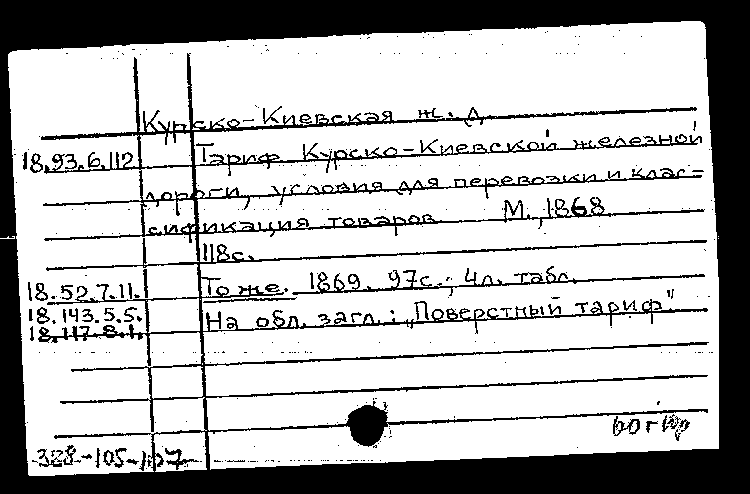 Курско-Киевская ж. д.
18.93.6.112. Тариф Курско-Киевской железной
дороги, условия для перевозки и клас=
сификация товаров М., 1868
118с.
18.52.7.11. То же. 1869. 97с.; 4л. табл.
18.143.5.5. На обл. загл.: „Поверстный тариф"
18.117.8.1.
328-105-107